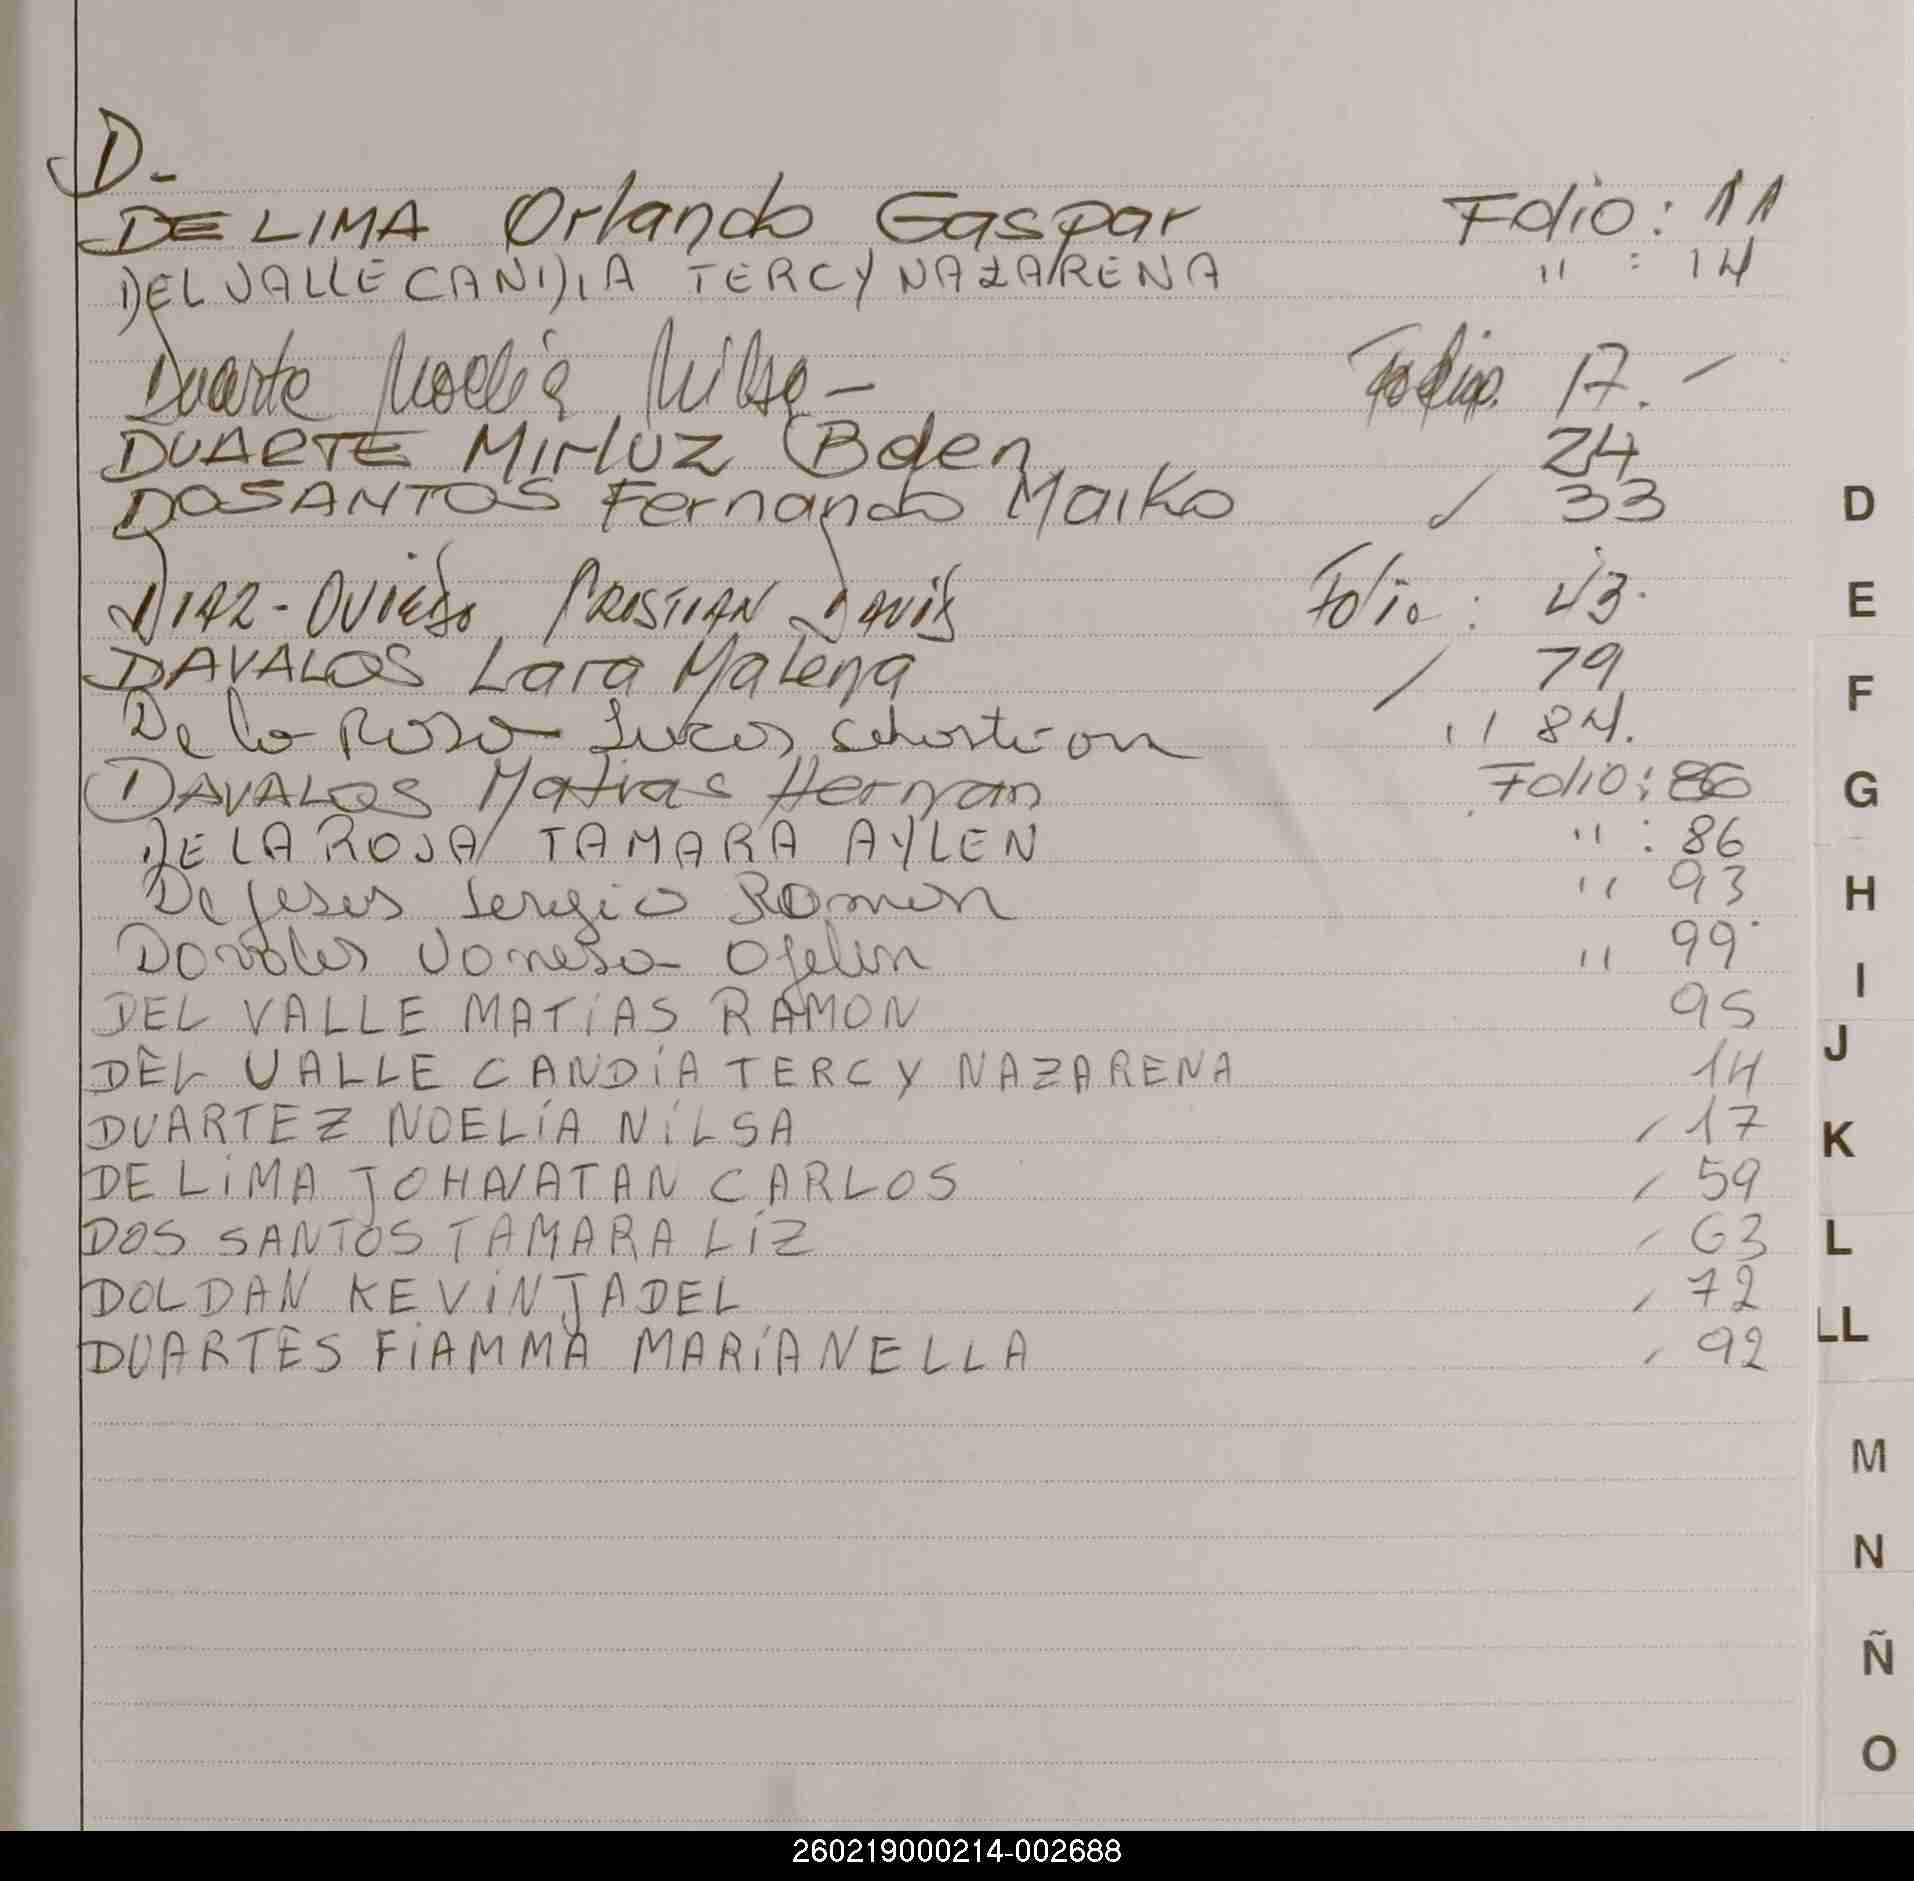 D.-
DE LIMA Orlando Gaspar Folio: 11
DEL VALLE CANDIA TERCY NAZARENA " : 14
Duarte Noelia Nilsa - Folio. 17. -
DUARTE Mirluz Belen 24
DOSANTOS Fernando Maiko / 33
DIAZ - OVIEDO CRISTIAN DAVID Folio: 43.
DAVALOS Lara Malena / 79
De la Rosa Lucas Sebastian " 84.
DAVALOS Matias Hernan Folio: 86
DE LA ROSA TAMARA AYLEN " : 86
De Jesus Sergio Ramon " 93
Davalos Vanesa Ofelia " 99
DEL VALLE MATIAS RAMON 95
DEL VALLE CANDIA TERCY NAZARENA 14
DUARTEZ NOELIA NILSA / 17
DE LIMA JOHNATAN CARLOS / 59
DOS SANTOS TAMARA LIZ / 63
DOLDAN KEVIN JADEL / 72
DUARTES FIAMMA MARIANELLA / 92
D
E
F
G
H
I
J
K
L
LL
M
N
Ñ
O
260219000214-002688